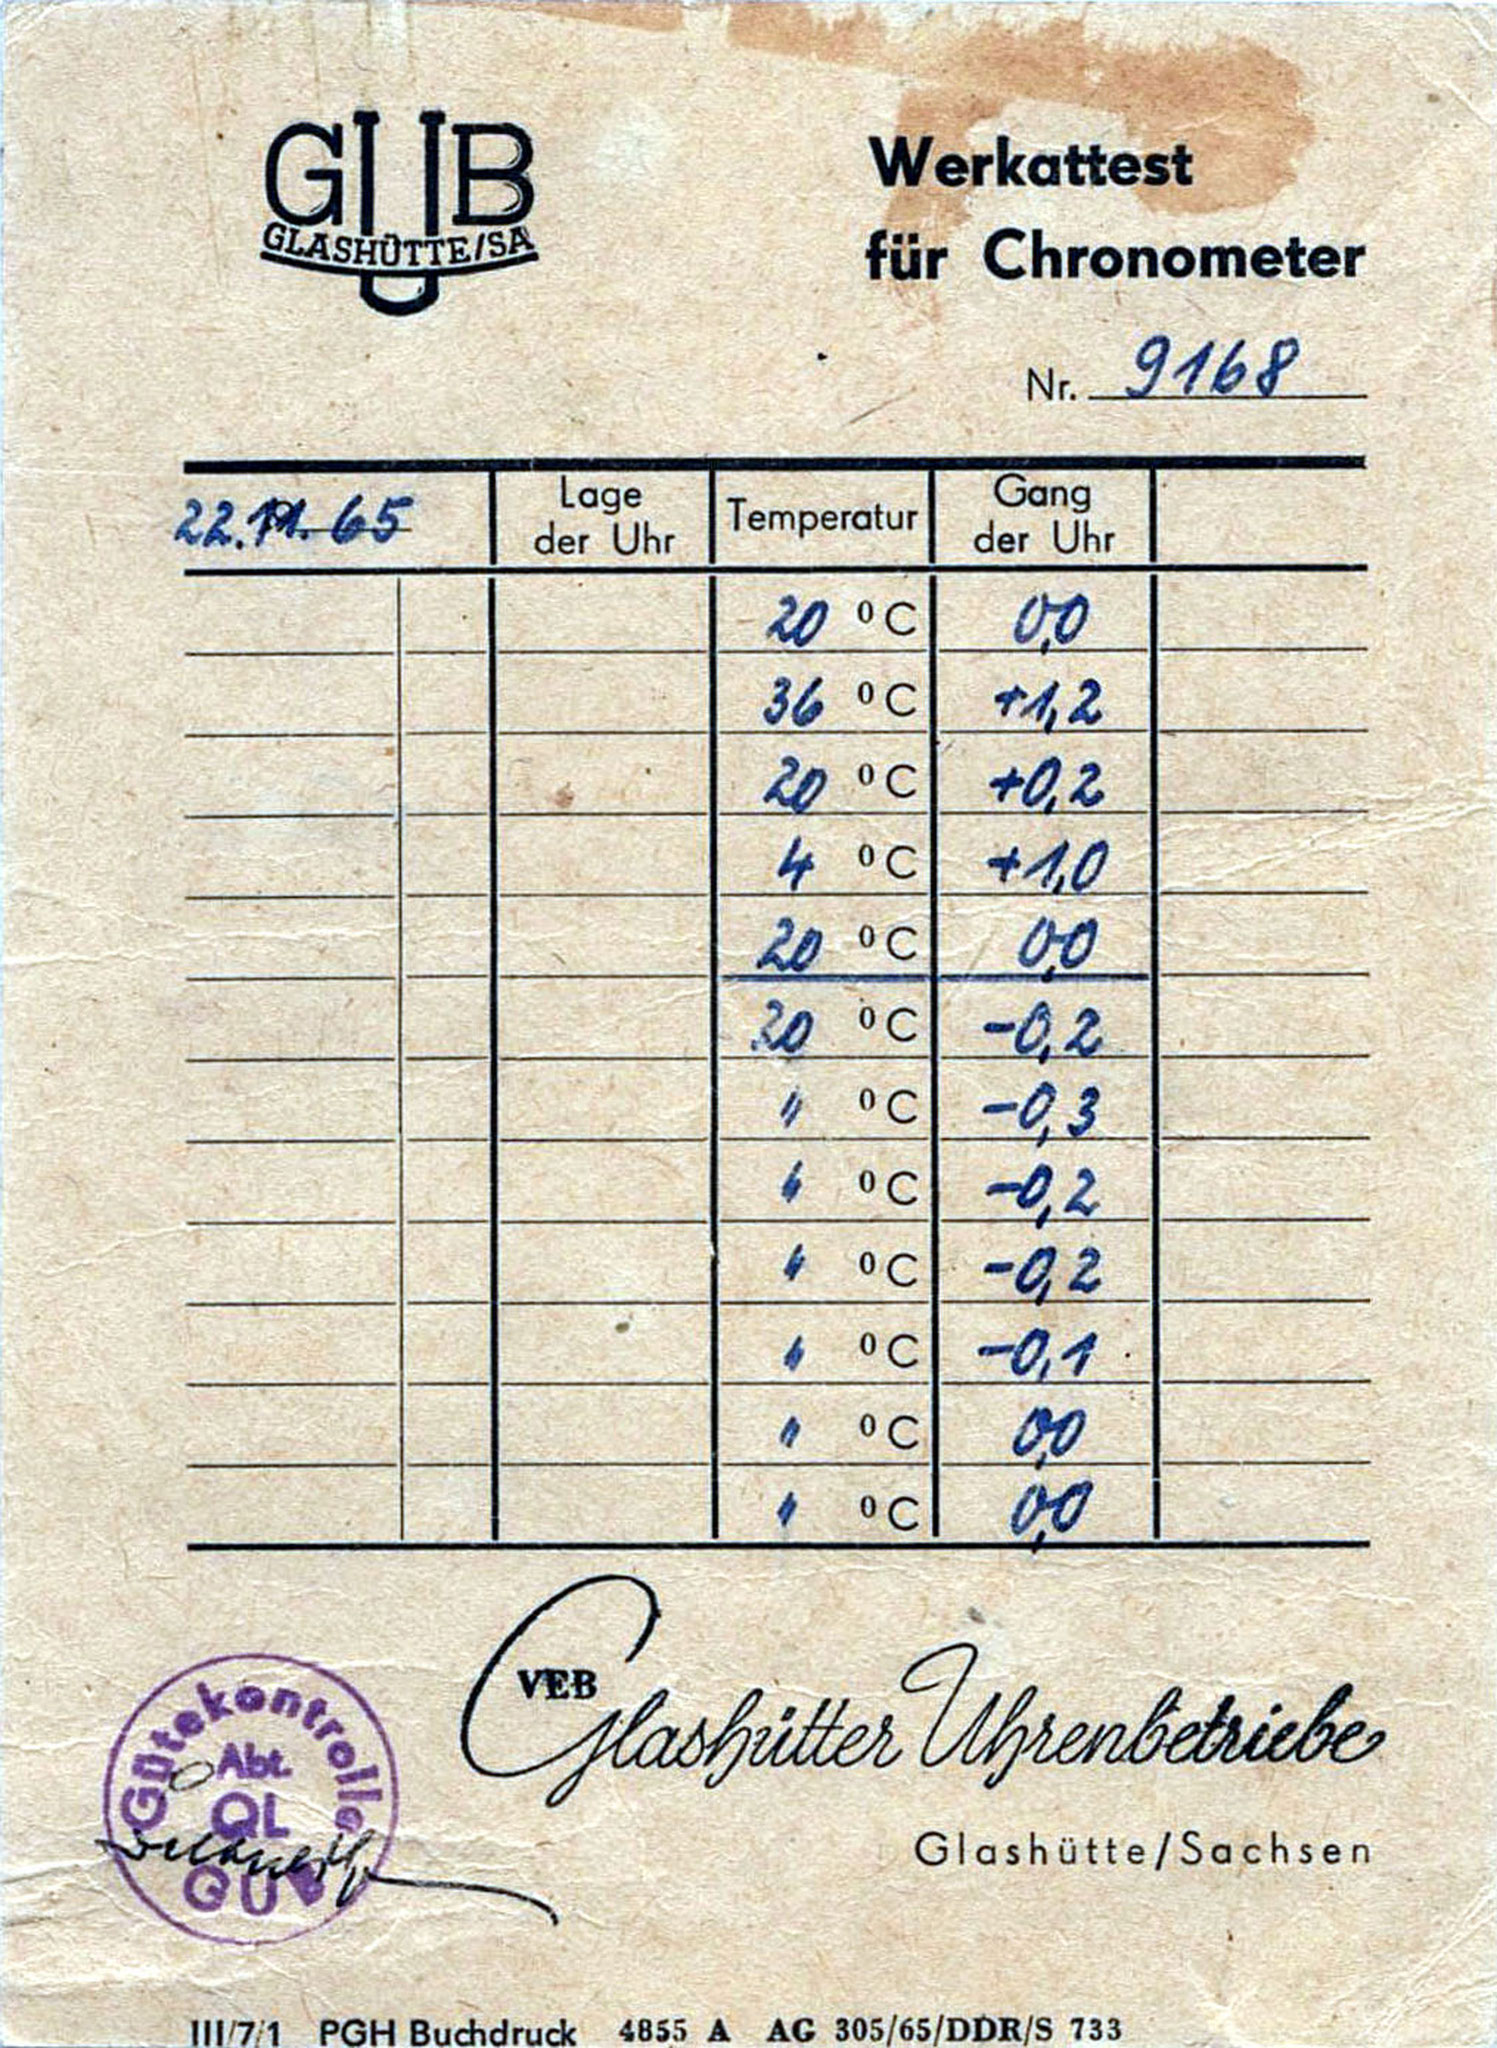 GUB
GLASHÜTTE/SA
Werkattest
für Chronometer
Nr. 9168
22.11.65
Lage der Uhr
Temperatur
Gang der Uhr
20 °C 0,0
36 °C +1,2
20 °C +0,2
4 °C +1,0
20 °C 0,0
20 °C -0,2
" °C -0,3
" °C -0,2
" °C -0,2
" °C -0,1
" °C 0,0
" °C 0,0
VEB Glashütter Uhrenbetriebe
Glashütte/Sachsen
Gütekontrolle
Abt.
QL
GUB
III/7/1 PGH Buchdruck 4855 A AG 305/65/DDR/S 733